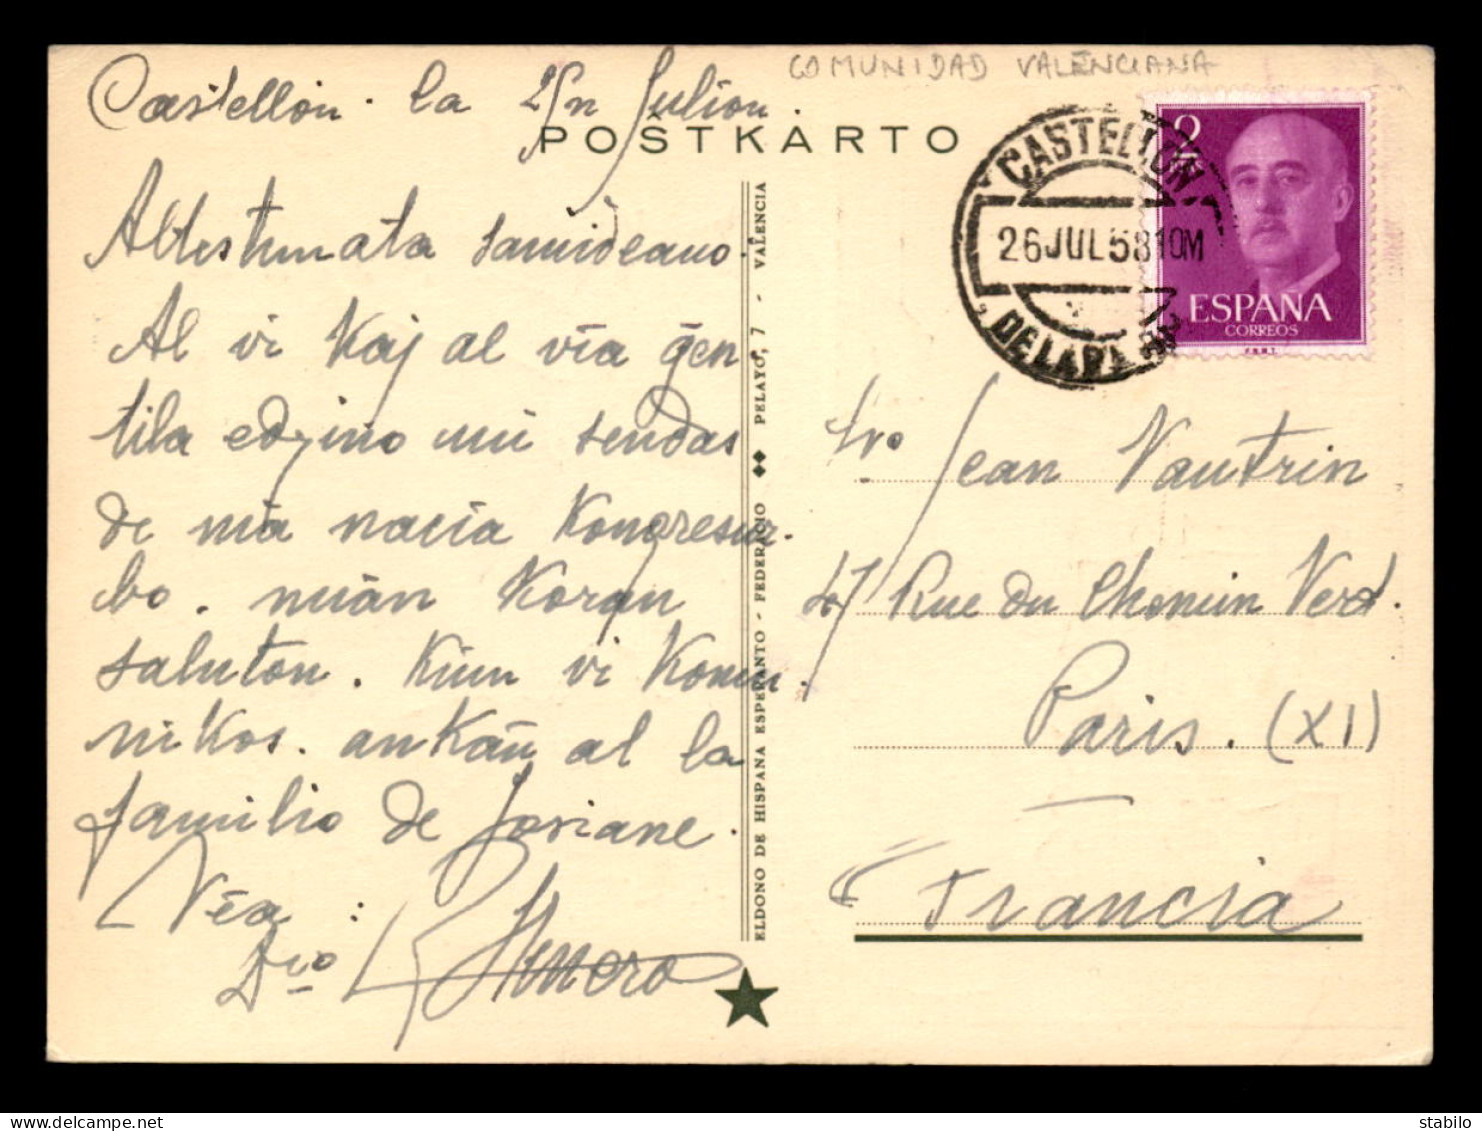 COMUNIDAD VALENCIANA
Castellón. la 25n Julion.
POŜTKARTO
Altestimata samideano.
Al vi Kaj al via ĝen
tila edzino mi sendas
de mia nacia Kongresur-
bo. mian Koran
saluton. Kiun vi Komu
nikos. ankaŭ al la
familio de Josiane.
Via:
Dro
ELDONO DE HISPANA ESPERANTO - FEDERACIO ◆◆ PELAYO, 7 - VALENCIA
CASTELLON
26 JUL 58 10M
DE LA PLA
2 PTAS
ESPAÑA
CORREOS
F.N.M.T.
Sro Jean Vautrin
47 Rue du Chemin Vert.
Paris. (XI)
Francia
stabilo